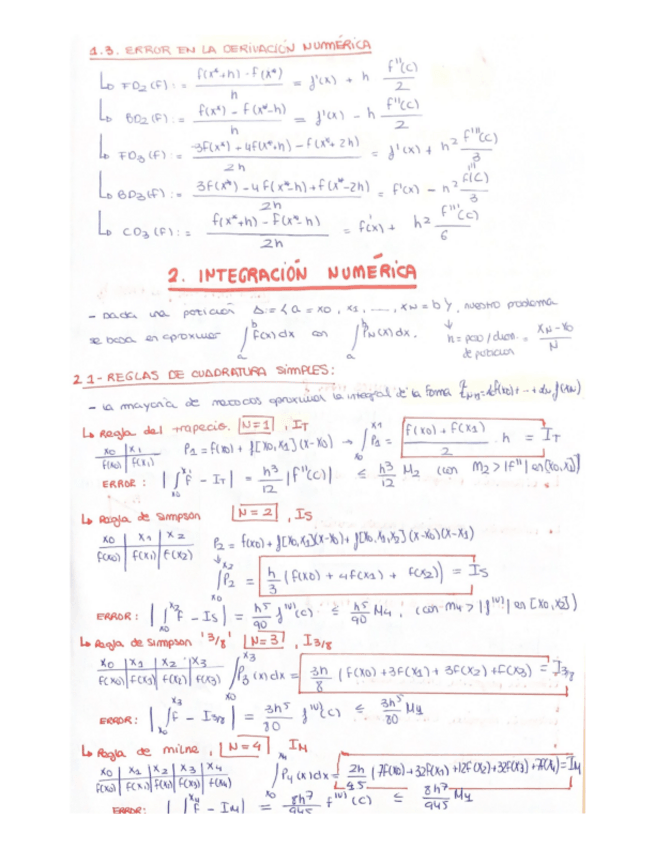 1.3. ERROR EN LA DERIVACIÓN NUMÉRICA
↳ FD₂(F) := (f(x*+h) - f(x*)) / h = f'(x) + h f''(c)/2
↳ BD₂(F) := (f(x*) - f(x*-h)) / h = f'(x) - h f''(c)/2
↳ FD₃(F) := (-3f(x*) + 4f(x*+h) - f(x*+2h)) / 2h = f'(x) + h² f'''(c)/3
↳ BD₃(F) := (3f(x*) - 4f(x*-h) + f(x*-2h)) / 2h = f'(x) - h² f(c)/3
↳ CD₃(F) := (f(x*+h) - f(x*-h)) / 2h = f'(x) + h² f'''(c)/6
2. INTEGRACIÓN NUMÉRICA
- Dada una partición Δ := { a = x0, x1, ..., xN = b }, nuestro problema
se basa en aproximar ∫ₐᵇ f(x)dx con ∫ₐᵇ PN(x)dx. ↓ h = paso / de partición = (xN - x0)/N
2.1- REGLAS DE CUADRATURA SIMPLES:
- la mayoría de métodos aproximan la integral de la forma
↳ Regla del trapecio. N=1, IT
x0 | x1
f(x0) | f(x1) P1 = f(x0) + f[x0,x1](x-x0) → ∫P1 = (f(x0) + f(x1))/2 · h = IT
ERROR: |∫f - IT| = h³/12 |f''(c)| ≤ h³/12 M2 (con M2 > |f''| en [x0,x1])
↳ Regla de Simpson N=2, IS
x0 | x1 | x2
f(x0) | f(x1) | f(x2) P2 = f(x0) + f[x0,x1](x-x0) + f[x0,x1,x2](x-x0)(x-x1)
∫P2 = h/3 (f(x0) + 4f(x1) + f(x2)) = IS
ERROR: |∫f - IS| = h⁵/90 f^IV(c) ≤ h⁵/90 M4, (con M4 > |f^IV| en [x0,x2])
↳ Regla de Simpson '3/8' N=3, I3/8
x0 | x1 | x2 | x3
f(x0) | f(x1) | f(x2) | f(x3) ∫P3(x)dx = 3h/8 (f(x0) + 3f(x1) + 3f(x2) + f(x3)) = I3/8
ERROR: |∫f - I3/8| = 3h⁵/80 f^IV(c) ≤ 3h⁵/80 M4
↳ Regla de Milne, N=4, IM
x0 | x1 | x2 | x3 | x4
f(x0) | f(x1) | f(x2) | f(x3) | f(x4) ∫P4(x)dx = 2h/45 (7f(x0) + 32f(x1) + 12f(x2) + 32f(x3) + 7f(x4)) = IM
ERROR: |∫f - IM| = 8h⁷/945 f^(VI)(c) ≤ 8h⁷/945 M4